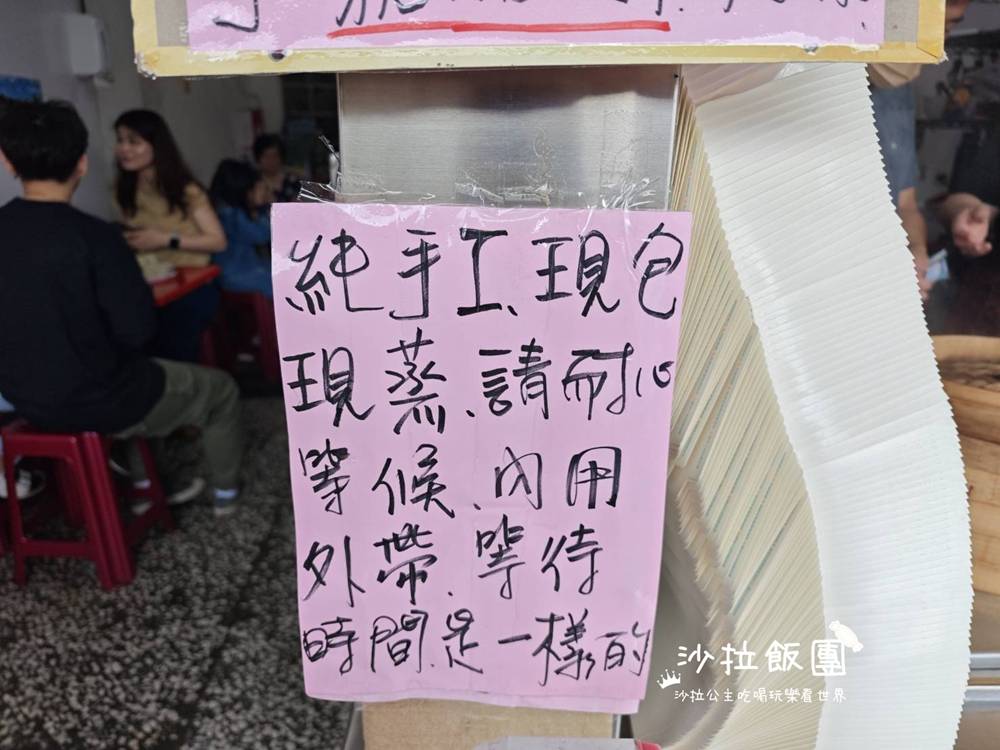 純手工、現包
現蒸、請耐心
等候、內用
外帶、等待
時間是一樣的
沙拉飯團
沙拉公主吃喝玩樂看世界